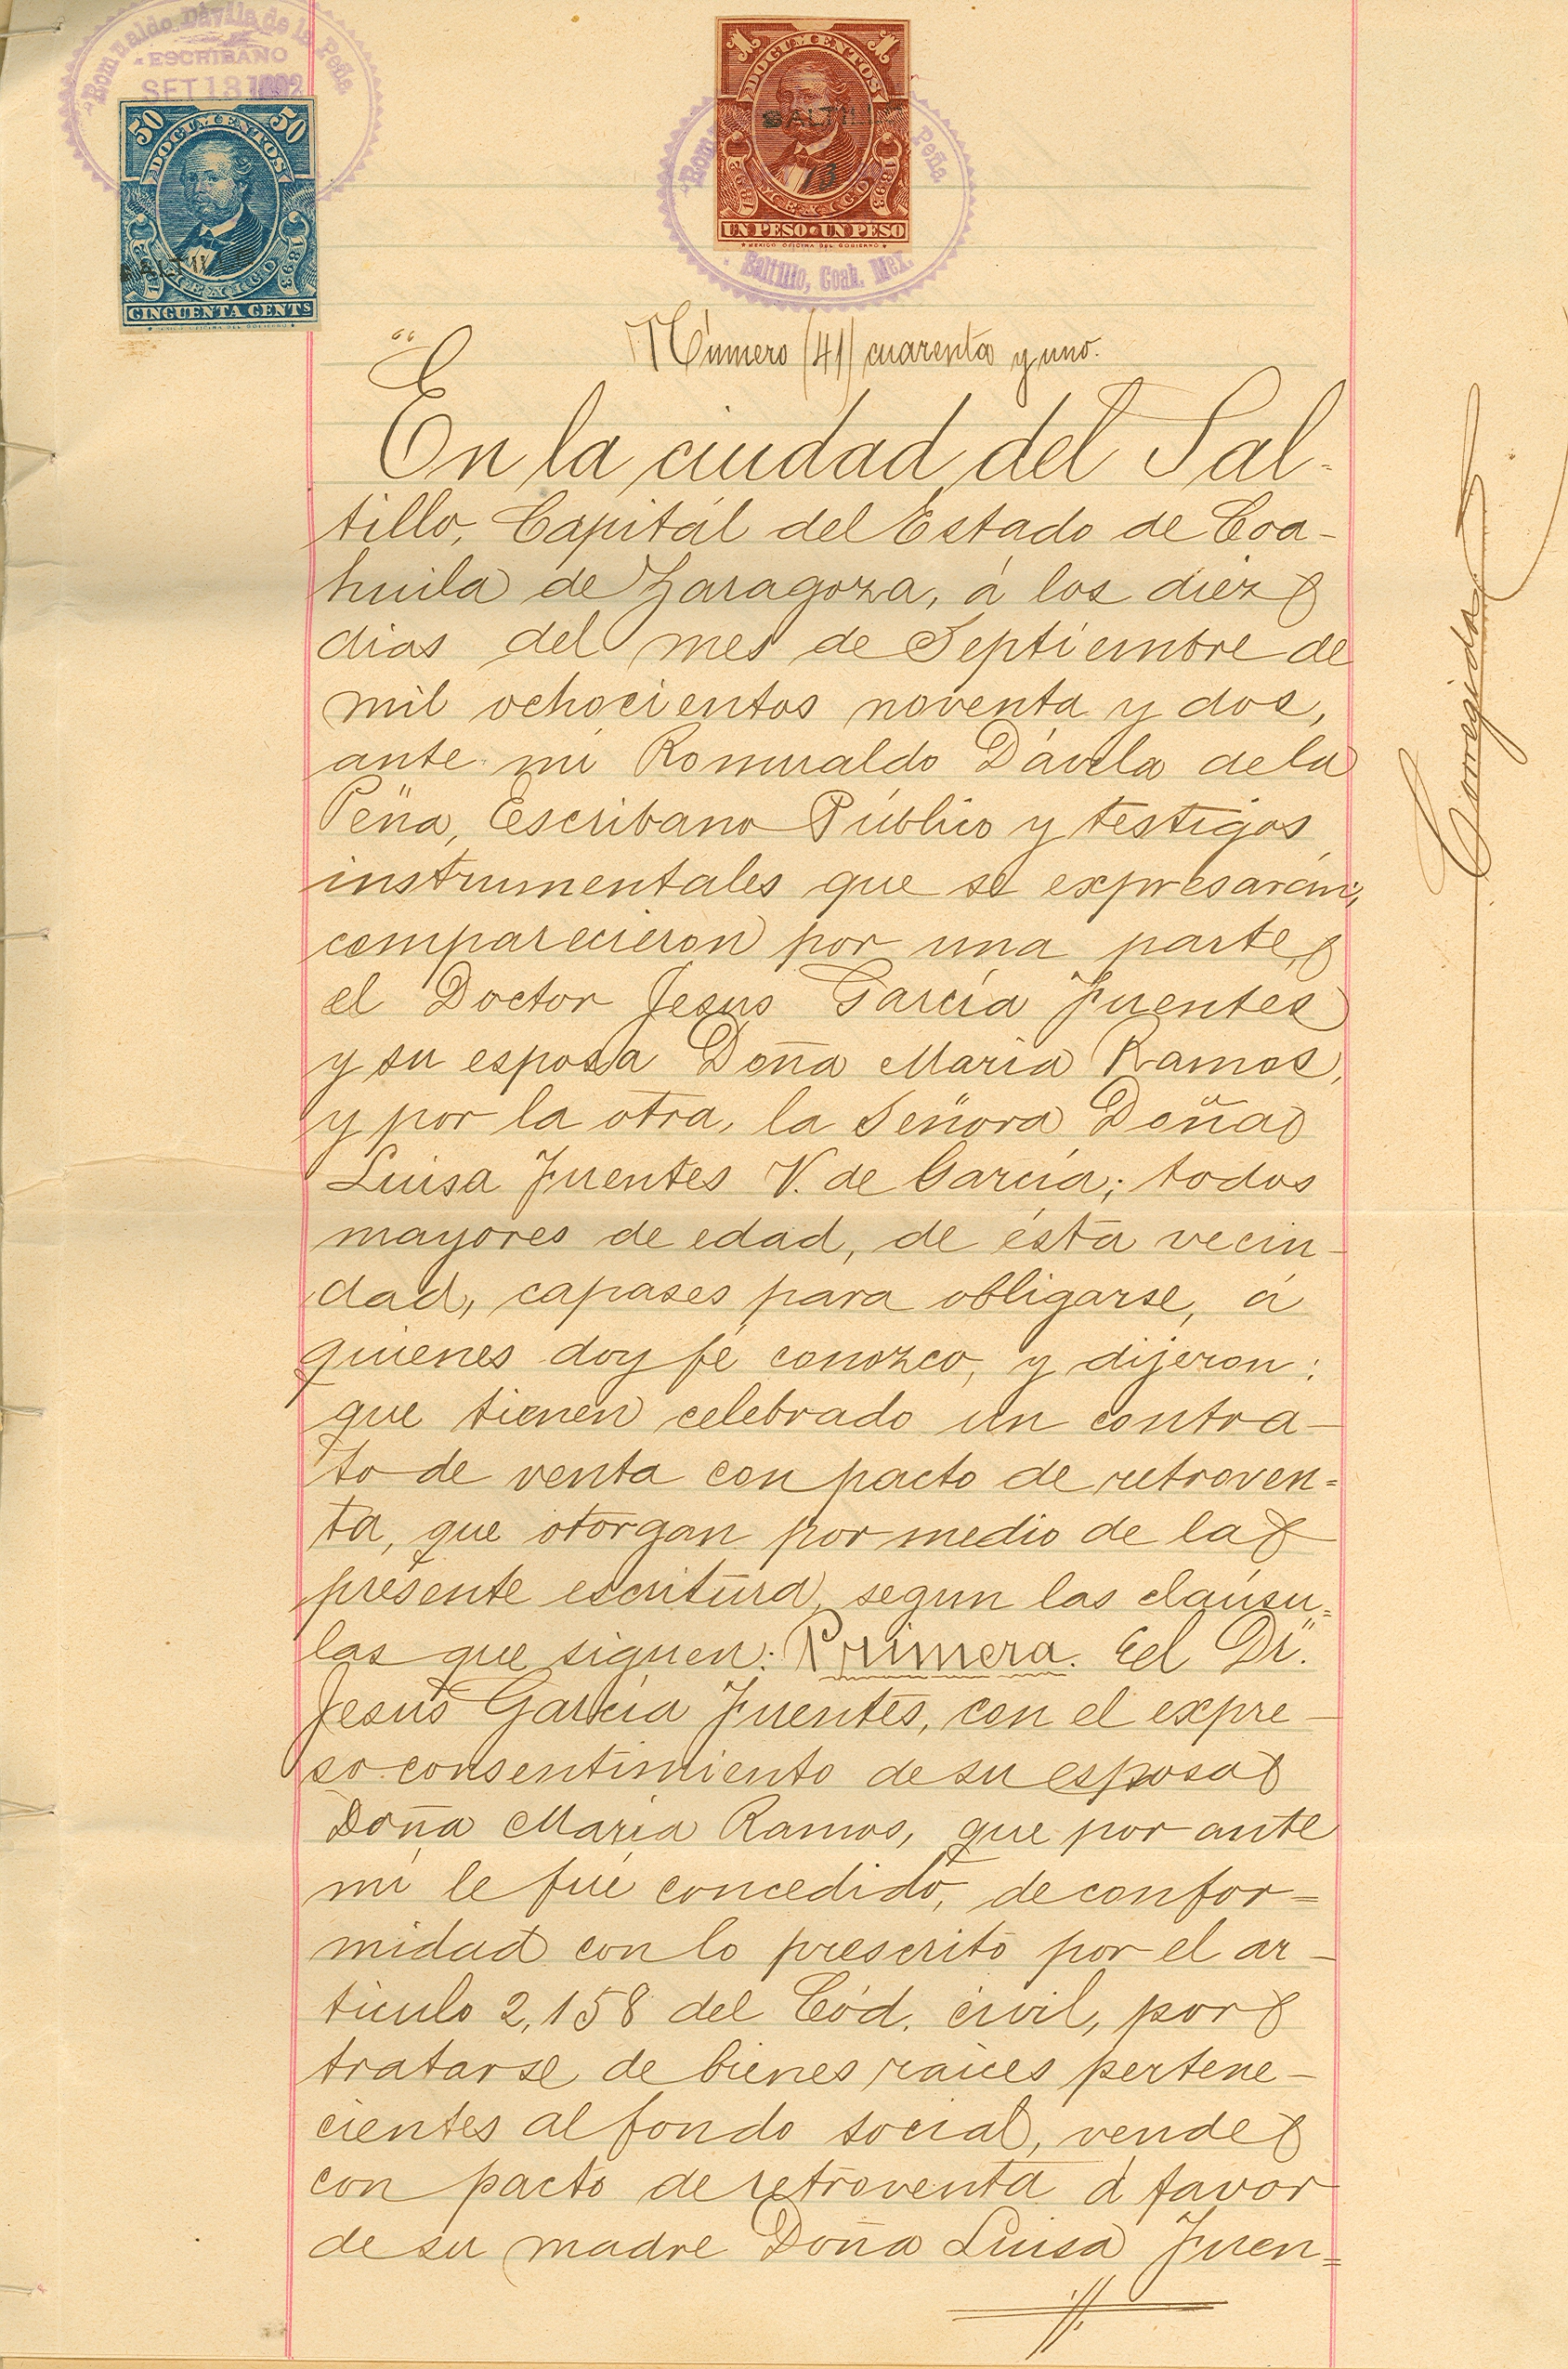 Romualdo Dávila de la Peña
ESCRIBANO
SET 13 1892
50 50
DOCUMENTOS
MEXICO
1892 1893
CINCUENTA CENTS
MEXICO OFICINA DEL GOBIERNO
1 1
DOCUMENTOS
SALTILLO
13
MEXICO
1892 1893
UN PESO UN PESO
MEXICO OFICINA DEL GOBIERNO
Rom Peña
Saltillo, Coah. Mex.
Número (41) cuarenta y uno.
"En la ciudad del Sal-
tillo, Capitál del Estado de Coa-
huila de Zaragoza, á los diez
dias del mes de Septiembre de
mil ochocientos noventa y dos,
ante mi Romualdo Dávila de la
Peña, Escribano Público y testigos
instrumentales que se expresarán;
comparecieron por una parte,
el Doctor Jesus García Fuentes
y su esposa Doña Maria Ramos,
y por la otra, la Señora Doña
Luisa Fuentes V. de García; todos
mayores de edad, de ésta vecin-
dad, capases para obligarse, á
quienes doy fé conozco, y dijeron:
que tienen celebrado un contra-
to de venta con pacto de retroven=
ta, que otorgan por medio de la
presente escritura, segun las cláusu=
las que siguen: Primera. El Dr.
Jesus García Fuentes, con el expre-
so consentimiento de su esposa
Doña María Ramos, que por ante
mi le fué concedido, de confor=
midad con lo prescrito por el ar-
tículo 2,158 del Cód. civil, por
tratarse de bienes raices pertene-
cientes al fondo social, vende
con pacto de retroventa á favor
de su madre Doña Luisa Fuen=
Corregida